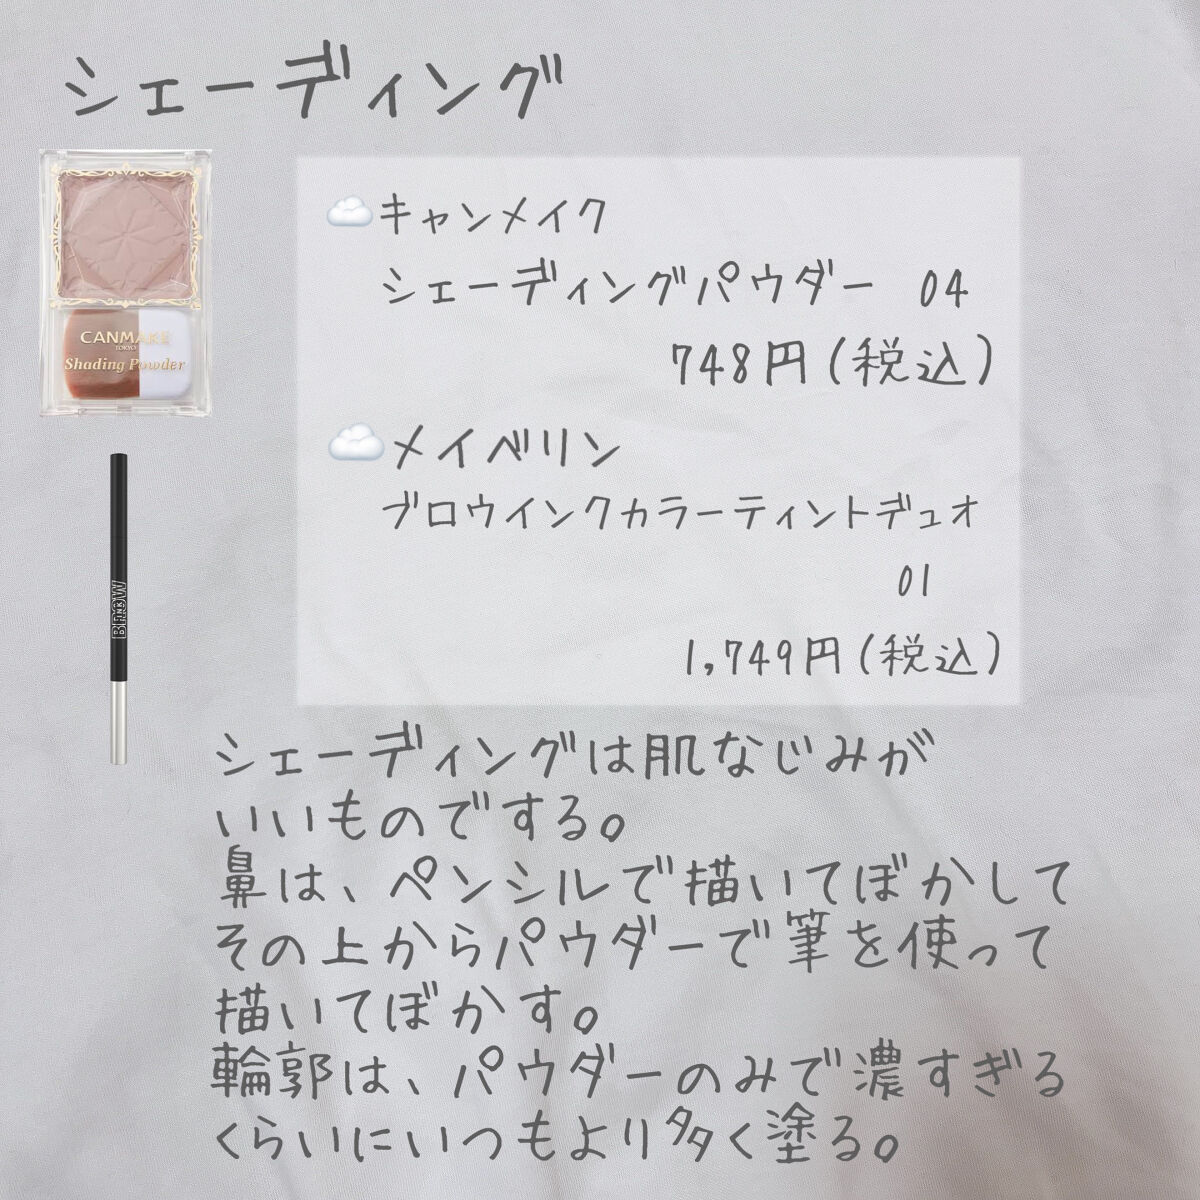 シェーディング
キャンメイク
シェーディングパウダー 04
748円(税込)
CANMAKE
TOKYO
Shading Powder
メイベリン
ブロウインクカラーティントデュオ
01
1,749円(税込)
BROW
INK
シェーディングは肌なじみが
いいものでする。
鼻は、ペンシルで描いてぼかして
その上からパウダーで筆を使って
描いてぼかす。
輪郭は、パウダーのみで濃すぎる
くらいにいつもより多く塗る。